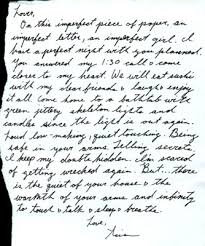 Lover,
On this imperfect piece of paper, an
imperfect letter, an imperfect girl. I'll
have a perfect night with you planned.
You answered my 1:30 call & come
closer to my heart. We will eat sushi
with my dear friends & laugh & enjoy
it all. Come home to a bathtub with
green jittery skeleton lights and
candles since the light is out again.
Loud love making & quiet touching. Being
safe in your arms. Telling secrets.
I keep my double hidden. I'm scared
of getting wrecked again. But.. there
is the quiet of your house & the
warmth of your arms and infinity
to touch & talk & sleep & breathe.
Love,